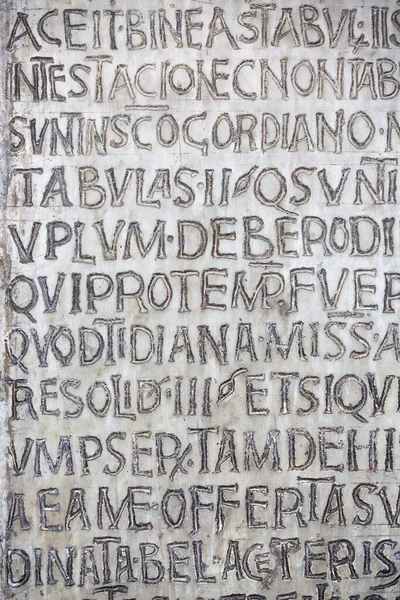 ACEIT·BINEASTABVL·IIS
INTESTACIONECNONTAB
SVNTINSCOGORDIANO·
TABVLASII QSVNT
VPLVM·DEBERODI
QVIPROTEMPFVER
QVODTIDIANAMISSA
RESOLID·III ETSIQVI
VMPSER TAMDEHI
AEAMEOFFERTASV
DINATABELACETERIS